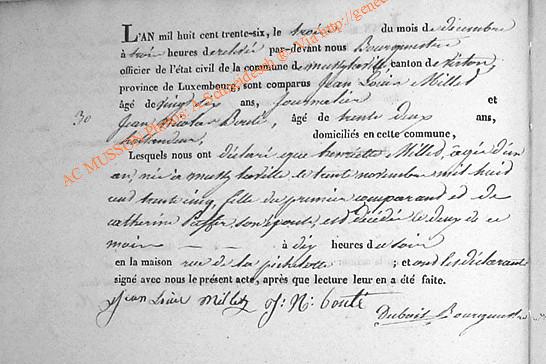 L'AN mil huit cent trente-six, le trois du mois de décembre
à trois heures de relevée par-devant nous Bourgmestre
officier de l'état civil de la commune de canton de Virton,
province de Luxembourg, sont comparus Jean Louis Millet
âgé de ans, journalier et
30 Jean Nicolas Bonté, âgé de trente deux ans,
domiciliés en cette commune,
Lesquels nous ont déclaré que henriette Millet, âgée d'un
an, née à le trente novembre mil huit
cent trente cinq, fille du premier comparant et de
catherine son épouse, est décédée le deux de ce
mois à dix heures de soir
en la maison rue de la ; et ont les déclarants
signé avec nous le présent acte, après que lecture leur en a été faite.
Jean Louis Millet J: N: bonté
Dubois Bourgmestre
AC MUSSON Photos: A.Schmidesch ® - Via http://gene